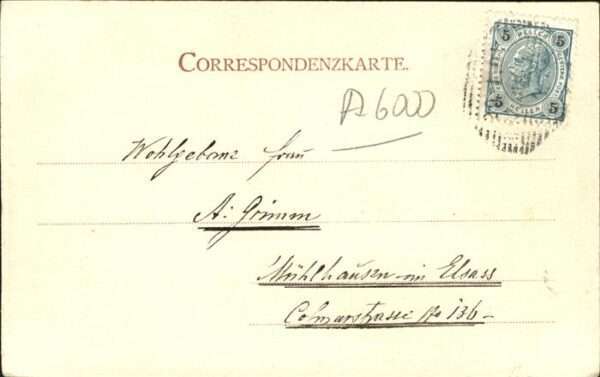 CORRESPONDENZKARTE.
5 5
5 HELLER 5
A6000
Wohlgeborne Frau
A. Grimm
Mühlhausen im Elsass
Colmarstrasse No 136